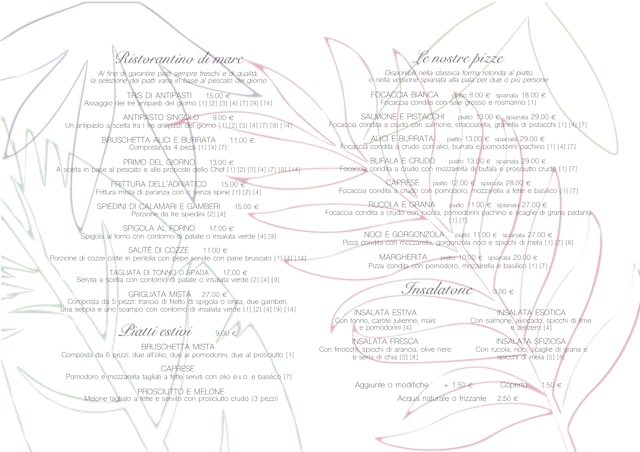 Ristorantino di mare
Al fine di garantire piatti sempre freschi e di qualità,
la selezione dei piatti varia in base al pescato del giorno
TRIS DI ANTIPASTI 15.00 €
Assaggio dei tre antipasti del giorno [1] [2] [3] [4] [7] [9] [14]
ANTIPASTO SINGOLO 9.00 €
Un antipasto a scelta tra i tre antipasti del giorno [1] [2] [3] [4] [7] [9] [14]
BRUSCHETTA ALICI E BURRATA 11.00 €
Composta da 4 pezzi [1] [4] [7]
PRIMO DEL GIORNO 13.00 €
A scelta in base al pescato e alle proposte dello Chef [1] [2] [3] [4] [7] [9] [14]
FRITTURA DELL'ADRIATICO 15.00 €
Frittura mista di paranza con o senza spine [1] [2] [4]
SPIEDINI DI CALAMARI E GAMBERI 15.00 €
Porzione da tre spiedini [2] [4]
SPIGOLA AL FORNO 17.00 €
Spigola al forno con contorno di patate o insalata verde [4] [9]
SAUTÉ DI COZZE 11.00 €
Porzione di cozze cotte in pentola con pepe servite con pane bruscato [1] [4] [14]
TAGLIATA DI TONNO O SPADA 17.00 €
Servita a scelta con contorno di patate o insalata verde [2] [4] [9]
GRIGLIATA MISTA 27.00 €
Composta da 5 pezzi: trancio di filetto di spigola o orata, due gamberi,
una seppia e uno scampo con contorno di insalata verde [1] [2] [4] [9] [14]
Piatti estivi 9.00 €
BRUSCHETTA MISTA
Composta da 6 pezzi: due all'olio, due ai pomodorini, due al prosciutto [1]
CAPRESE
Pomodoro e mozzarella tagliati a fette serviti con olio e.v.o. e basilico [7]
PROSCIUTTO E MELONE
Melone tagliato a fette e servito con prosciutto crudo (3 pezzi)
Le nostre pizze
Disponibili nella classica forma rotonda al piatto
o nella versione spianata alla pala per due o più persone
FOCACCIA BIANCA piatto 8.00 € spianata 18.00 €
Focaccia condita con sale grosso e rosmarino [1]
SALMONE E PISTACCHI piatto 13.00 € spianata 29.00 €
Focaccia condita a crudo con salmone, stracciatella, granella di pistacchi [1] [4] [7]
ALICI E BURRATA piatto 13.00 € spianata 29.00 €
Focaccia condita a crudo con alici, burrata e pomodorini pachino [1] [4] [7]
BUFALA E CRUDO piatto 13.00 € spianata 29.00 €
Focaccia condita a crudo con mozzarella di bufala e prosciutto crudo [1] [7]
CAPRESE piatto 12.00 € spianata 28.00 €
Focaccia condita a crudo con pomodoro, mozzarella a fette e basilico [1] [7]
RUCOLA E GRANA piatto 11.00 € spianata 27.00 €
Focaccia condita a crudo con rucola, pomodorini pachino e scaglie di grana padano
[1] [7]
NOCI E GORGONZOLA piatto 11.00 € spianata 27.00 €
Pizza condita con mozzarella, gorgonzola noci e spicchi di mela [1] [7] [8]
MARGHERITA piatto 10.00 € spianata 20.00 €
Pizza condita con pomodoro, mozzarella e basilico [1] [7]
Insalatone 9.00 €
INSALATA ESTIVA
Con tonno, carote julienne, mais
e pomodorini [4]
INSALATA ESOTICA
Con salmone, avocado, spicchi di lime
e zenzero [4]
INSALATA FRESCA
Con finocchi, spicchi di arancia, olive nere
e semi di chia [5] [8]
INSALATA SFIZIOSA
Con rucola, noci, scaglie di grana e
spicchi di mela [5] [8]
Aggiunte o modifiche + 1.50 € Coperto 1.50 €
Acqua naturale o frizzante 2.50 €